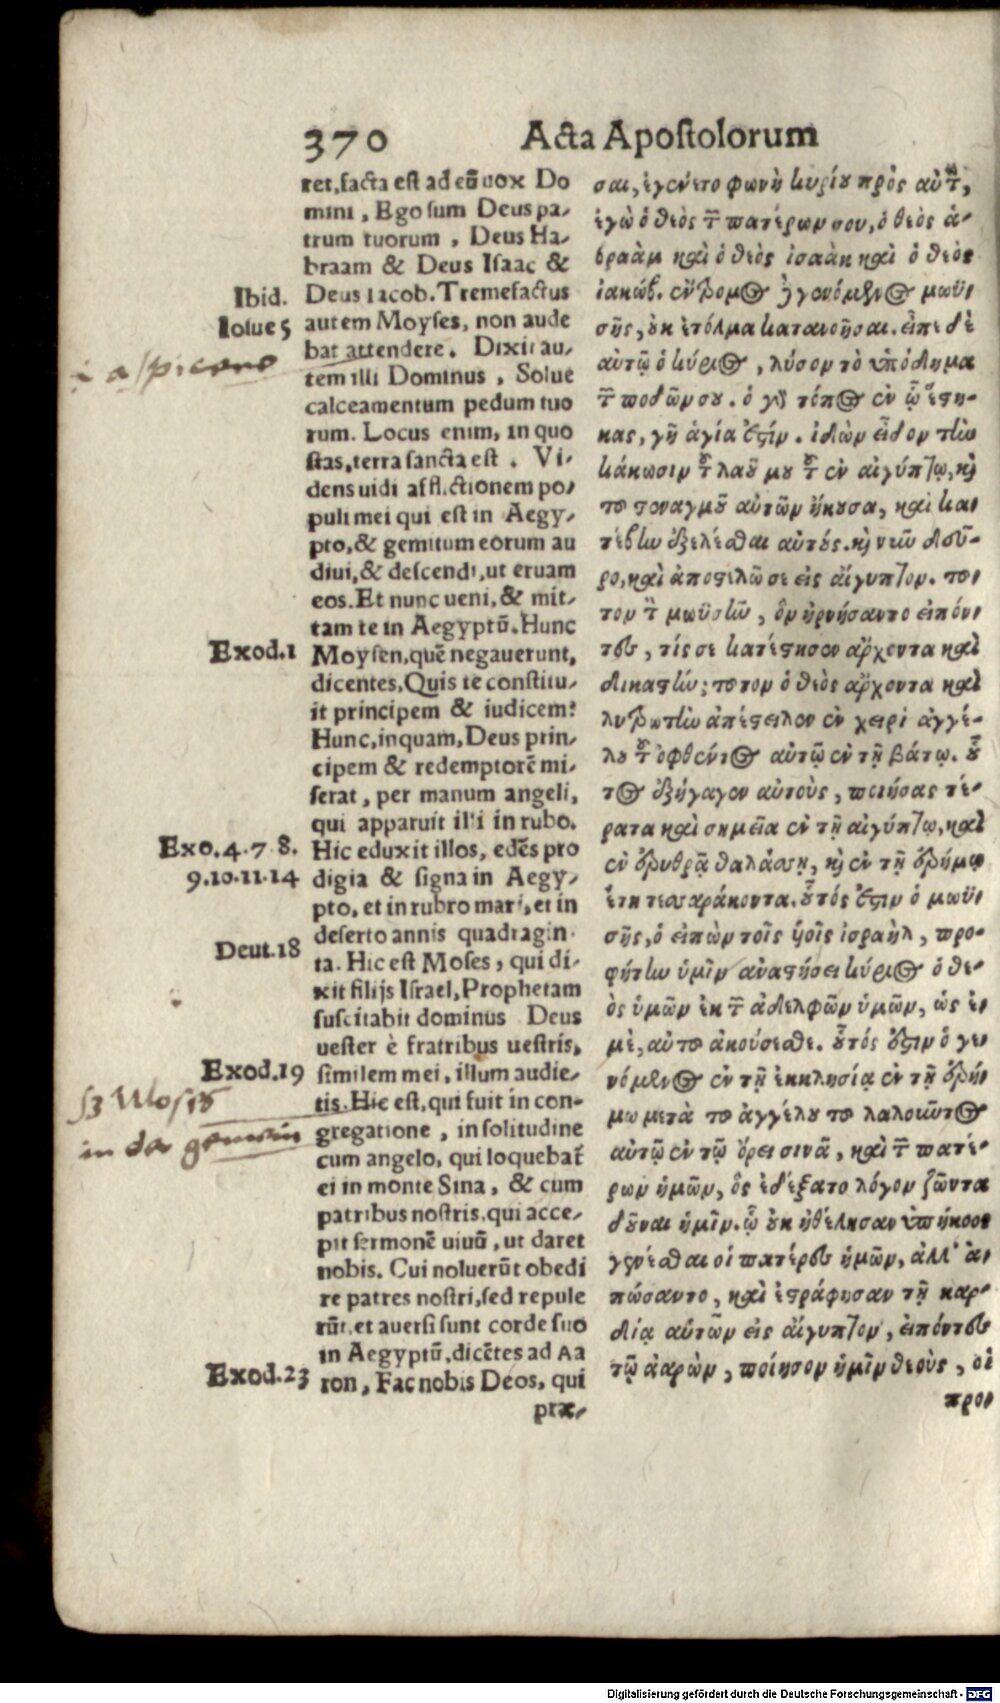 370 Acta Apostolorum
ret, facta est ad eũ uox Do
mini, Ego sum Deus pa-
trum tuorum, Deus Ha-
braam & Deus Isaac &
Ibid.
Deus Iacob. Tremefactus
Iosue 5
autem Moyses, non aude
bat attendere. Dixit au-
aspicere
tem illi Dominus, Solue
calceamentum pedum tuo
rum. Locus enim, in quo
stas, terra sancta est. Vi-
dens uidi afflictionem po-
puli mei qui est in Aegy-
pto, & gemitum eorum au
diui, & descendi, ut eruam
eos. Et nunc ueni, & mit-
tam te in Aegyptũ. Hunc
Exod.1
Moysen, quẽ negauerunt,
dicentes, Quis te constitu-
it principem & iudicem?
Hunc, inquam, Deus prin-
cipem & redemptorẽ mi-
serat, per manum angeli,
qui apparuit illi in rubo.
Exo.4.7.8.
Hic eduxit illos, edẽs pro
9.10.11.14
digia & signa in Aegy-
pto, et in rubro mari, et in
deserto annis quadragin-
Deut.18
ta. Hic est Moses, qui di-
xit filijs Israel, Prophetam
suscitabit dominus Deus
uester è fratribus uestris,
Exod.19
similem mei, illum audie-
tis. Hic est, qui fuit in con-
Mosis
in da gemein
gregatione, in solitudine
cum angelo, qui loquebat̃
ei in monte Sina, & cum
patribus nostris, qui acce-
pit sermonẽ uiuũ, ut daret
nobis. Cui noluerũt obedi
re patres nostri, sed repule
rũt, et auersi sunt corde suo
in Aegyptũ, dicẽtes ad Aa
Exod.23
ron, Fac nobis Deos, qui
præ-
σαι, ἐγένετο φωνὴ κυρίου πρὸς αὐτὸν,
ἐγὼ ὁ θεὸς τῶν πατέρων σου, ὁ θεὸς ἀ-
βραὰμ καὶ ὁ θεὸς ἰσαὰκ καὶ ὁ θεὸς
ἰακώβ. ἔντρομος δὲ γενόμενος μωϋ-
σῆς, οὐκ ἐτόλμα κατανοῆσαι. εἶπε δὲ
αὐτῷ ὁ κύριος, λύσον τὸ ὑπόδημα
τῶν ποδῶν σου. ὁ γὰρ τόπος ἐν ᾧ ἕστη-
κας, γῆ ἁγία ἐστίν. ἰδὼν εἶδον τὴν
κάκωσιν τοῦ λαοῦ μου τοῦ ἐν αἰγύπτῳ, καὶ
τοῦ στεναγμοῦ αὐτῶν ἤκουσα, καὶ κα-
τέβην ἐξελέσθαι αὐτούς. καὶ νῦν δεῦ-
ρο, καὶ ἀποστελῶ σε εἰς αἴγυπτον. τοῦ-
τον τὸν μωϋσῆν, ὃν ἠρνήσαντο εἰπόν-
τες, τίς σε κατέστησεν ἄρχοντα καὶ
δικαστήν; τοῦτον ὁ θεὸς ἄρχοντα καὶ
λυτρωτὴν ἀπέστειλεν ἐν χειρὶ ἀγγέ-
λου τοῦ ὀφθέντος αὐτῷ ἐν τῇ βάτῳ. οὗ
τος ἐξήγαγεν αὐτοὺς, ποιήσας τέ-
ρατα καὶ σημεῖα ἐν τῇ αἰγύπτῳ, καὶ
ἐν ἐρυθρᾷ θαλάσσῃ, καὶ ἐν τῇ ἐρήμῳ
ἔτη τεσσαράκοντα. οὗτός ἐστιν ὁ μωϋ-
σῆς, ὁ εἰπὼν τοῖς υἱοῖς ἰσραὴλ, προ-
φήτην ὑμῖν ἀναστήσει κύριος ὁ θε-
ὸς ὑμῶν ἐκ τῶν ἀδελφῶν ὑμῶν, ὡς ἐ-
μὲ, αὐτοῦ ἀκούσεσθε. οὗτός ἐστιν ὁ γε-
νόμενος ἐν τῇ ἐκκλησίᾳ ἐν τῇ ἐρή-
μῳ μετὰ τοῦ ἀγγέλου τοῦ λαλοῦντος
αὐτῷ ἐν τῷ ὄρει σινᾶ, καὶ τῶν πατέ-
ρων ἡμῶν, ὃς ἐδέξατο λόγον ζῶντα
δοῦναι ἡμῖν. ᾧ οὐκ ἠθέλησαν ὑπήκοοι
γενέσθαι οἱ πατέρες ἡμῶν, ἀλλ' ἀ-
πώσαντο, καὶ ἐστράφησαν τῇ καρ-
δίᾳ αὐτῶν εἰς αἴγυπτον, εἰπόντες
τῷ ἀαρὼν, ποίησον ἡμῖν θεοὺς, οἳ
προ-
Digitalisierung gefördert durch die Deutsche Forschungsgemeinschaft - DFG